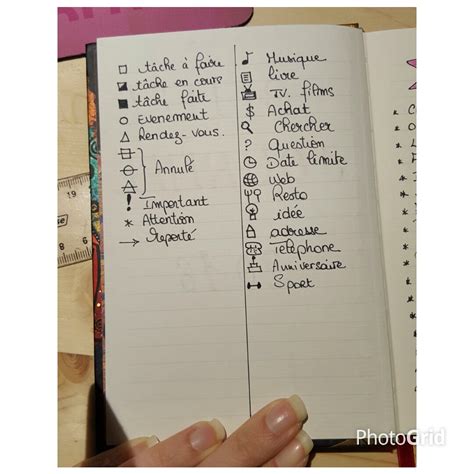 tâche à faire
tâche en cours
tâche faite
Evenement
Rendez-vous.
Annulé
! Important
* Attention
→ Reporté
Musique
livre
TV. films
$ Achat
Chercher
? Question
Date limite
Web
Resto
idée
adresse
Telephone
Anniversaire
Sport
19
18
17
PhotoGrid